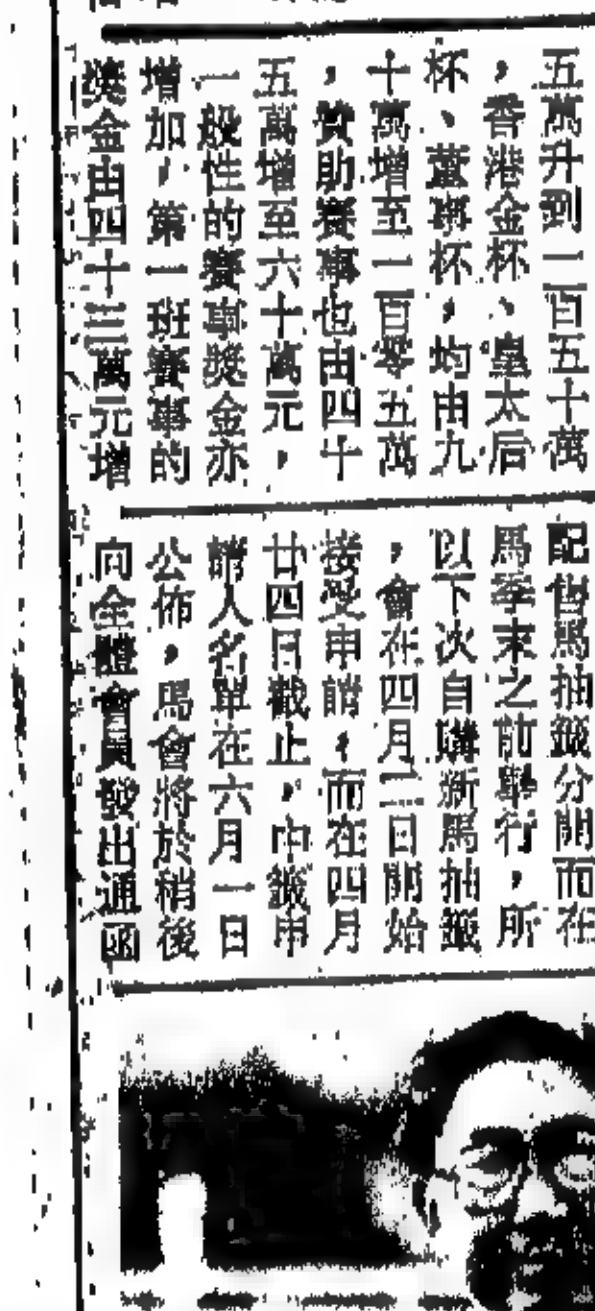 五萬升到一百五十萬
，香港金杯、皇太后
杯、董事杯，均由九
十萬增至一百零五萬
，贊助賽事也由四十
五萬增至六十萬元，
一般性的賽事獎金亦
增加，第一班賽事的
獎金由四十三萬元增
配售馬抽籤分開而在
馬季末之前舉行，所
以下次自購新馬抽籤
，會在四月二日開始
接受申請，而在四月
廿四日截止，中籤申
請人名單在六月一日
公佈，馬會將於稍後
向全體會員發出通函